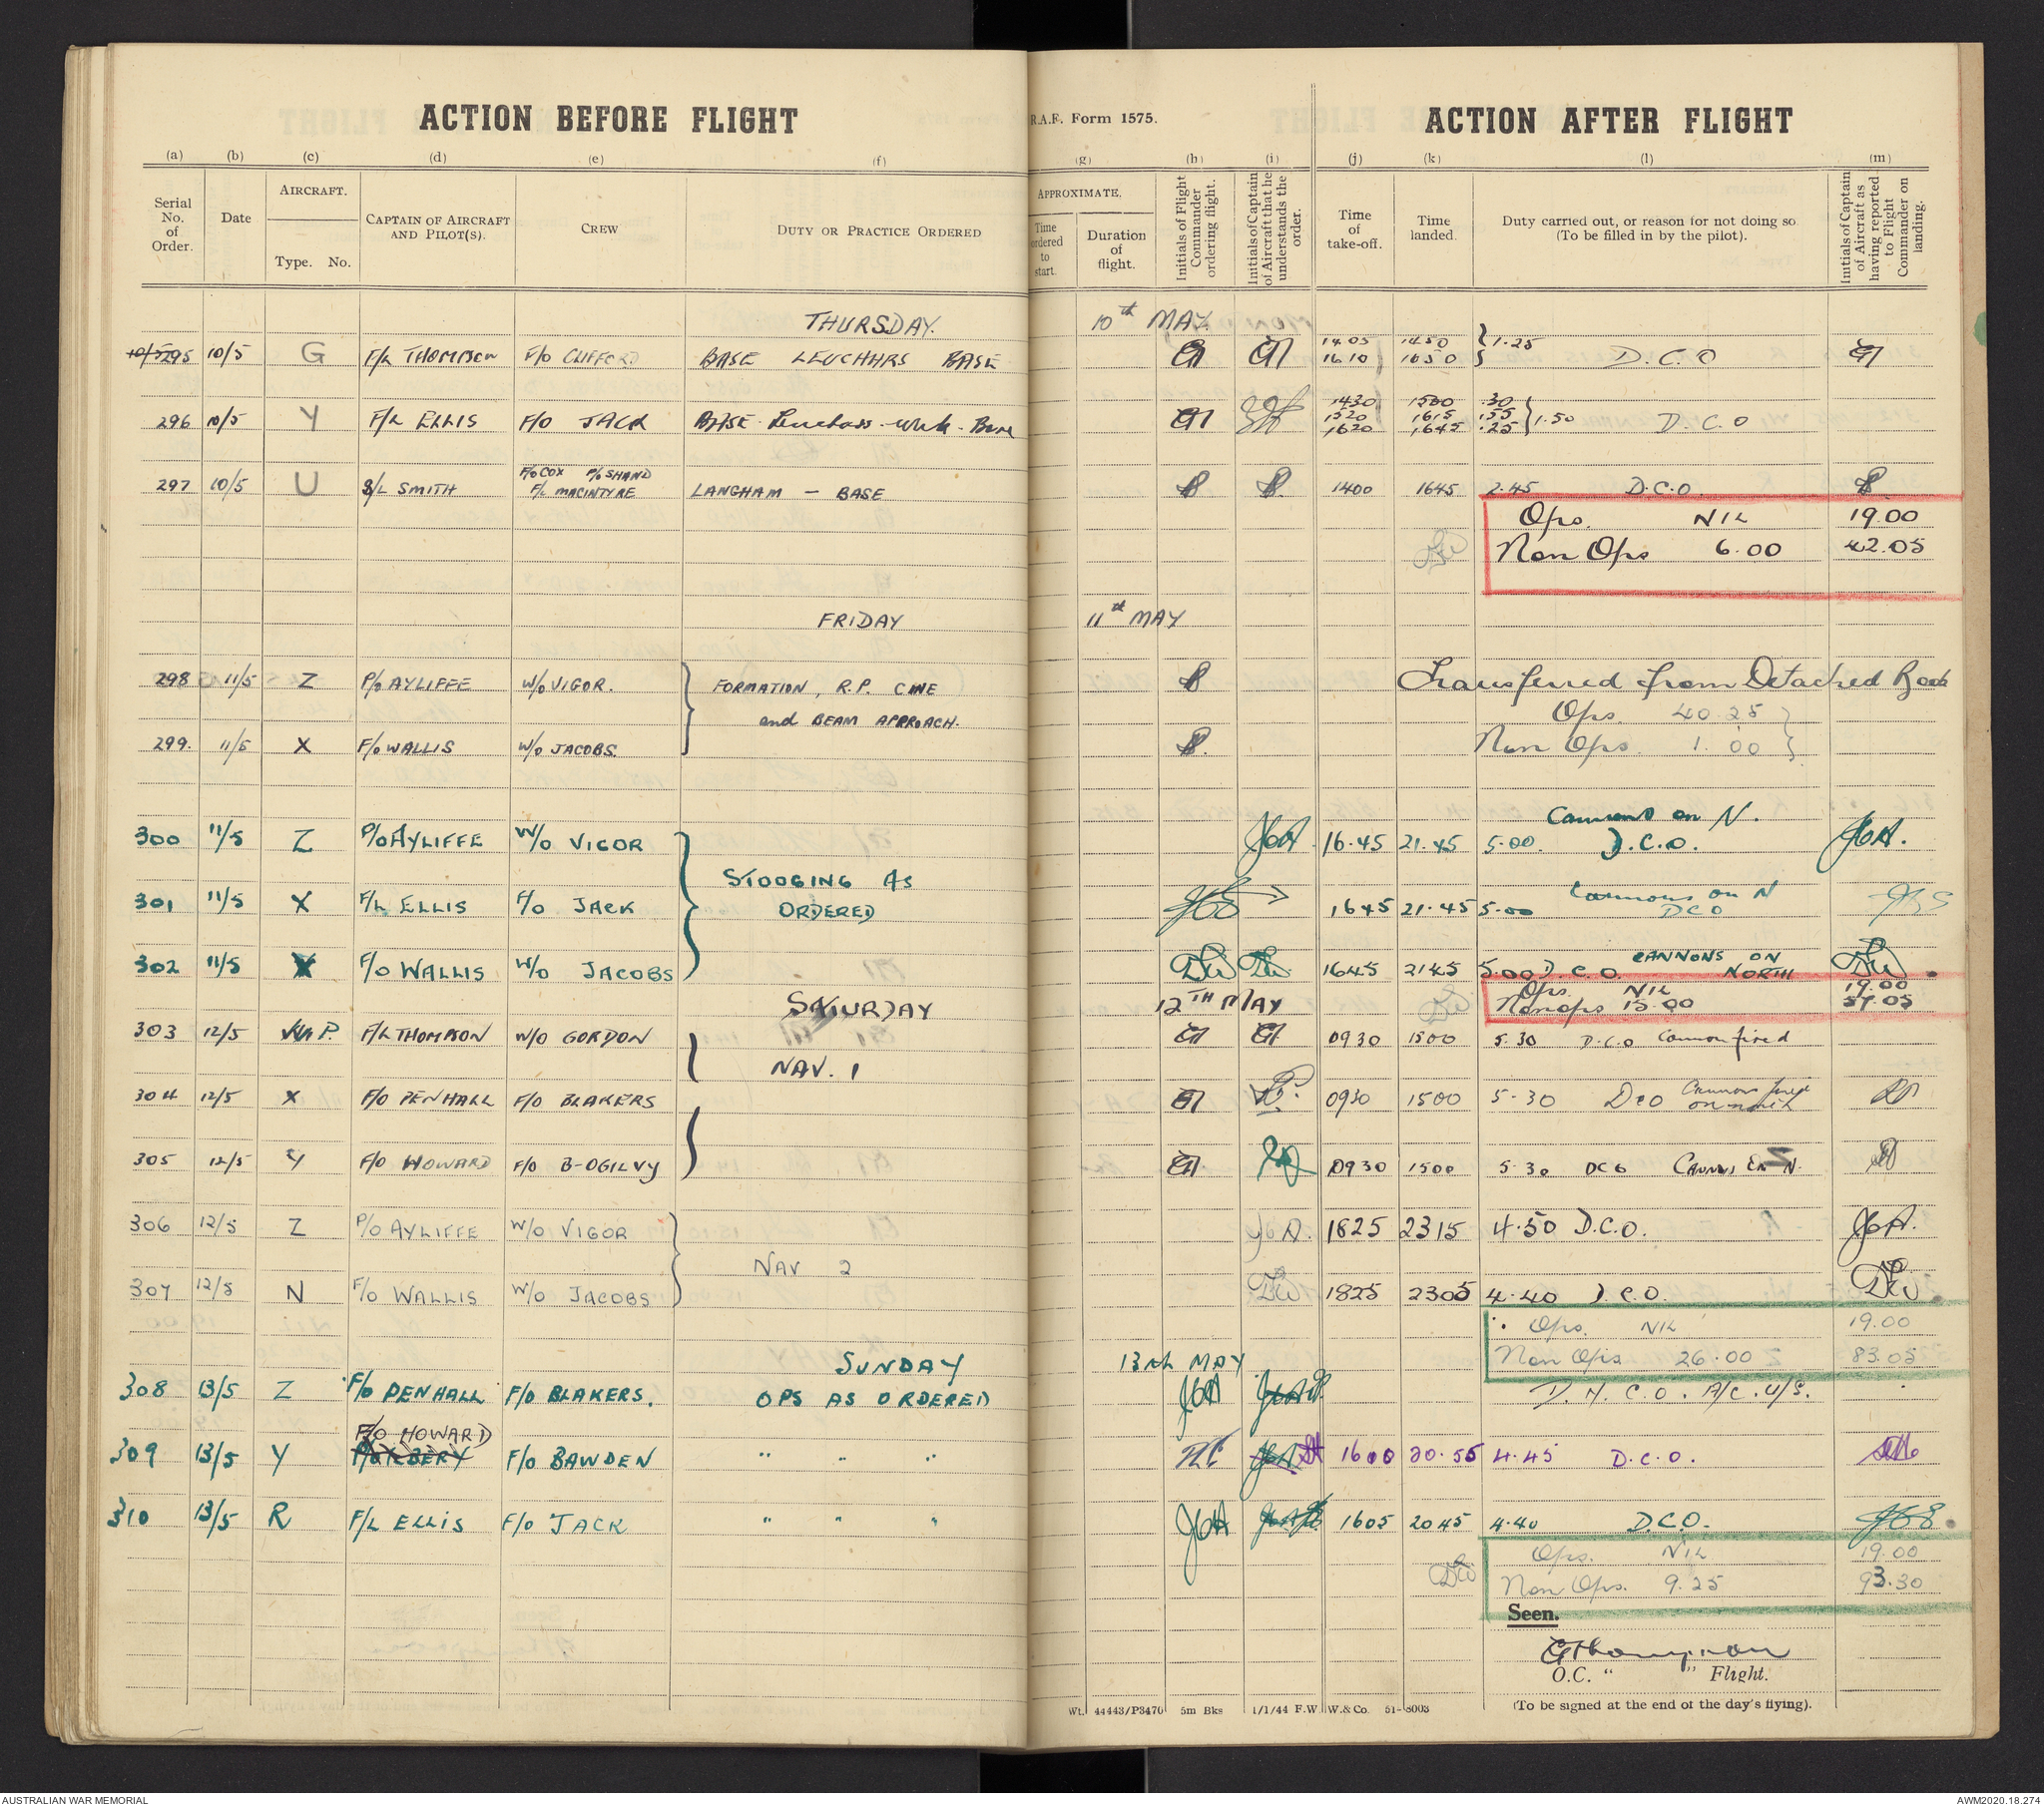 ACTION BEFORE FLIGHT
R.A.F. Form 1575.
ACTION AFTER FLIGHT
(a) (b) (c) (d) (e) (f) (g) (h) (i) (j) (k) (l) (m)
Serial No. of Order.
Date
AIRCRAFT.
Type. No.
CAPTAIN OF AIRCRAFT AND PILOT(S).
CREW
DUTY OR PRACTICE ORDERED
APPROXIMATE.
Time ordered to start.
Duration of flight.
Initials of Flight Commander ordering flight.
Initials of Captain of Aircraft that he understands the order.
Time of take-off.
Time landed.
Duty carried out, or reason for not doing so.
(To be filled in by the pilot).
Initials of Captain of Aircraft as having reported to Flight Commander on landing.
THURSDAY. 10th MAY.
1405 1450 } 1.25
295 10/5 G F/L THOMPSON F/O CLIFFORD BASE LEUCHARS BASE 1610 1650 D.C.O
1430 1500 .30
296 10/5 Y F/L ELLIS F/O JACK BASE 1520 1615 .55 } 1.50 D.C.O
1620 1645 .25
F/O COX P/O SHAND
297 10/5 U S/L SMITH F/L MACINTYRE LANGHAM — BASE 1400 1645 2.45 D.C.O.
Ops. NIL 19.00
Non Ops 6.00 42.05
FRIDAY 11th MAY
298 11/5 Z P/O AYLIFFE W/O VIGOR. FORMATION, R.P. CINE Transferred from Detached Book
and BEAM APPROACH. Ops 40.25
299. 11/5 X F/O WALLIS W/O JACOBS. Non Ops. 1.00
Cannons on N.
300 11/5 Z P/O AYLIFFE W/O VIGOR JGA 16.45 21.45 5.00. D.C.O. JGA.
STOOGING AS
Cannons on N
301 11/5 X F/L ELLIS F/O JACK ORDERED 1645 21.45 5.00 DCO
CANNONS ON
302 11/5 F/O WALLIS W/O JACOBS 1645 2145 5.00 D.C.O. NORTH
Ops. NIL 19.00
SATURDAY 12TH MAY Non ops 15.00 57.05
303 12/5 P. F/L THOMPSON W/O GORDON 0930 1500 5.30 D.C.O Cannon fired
NAV. 1
304 12/5 X F/O PENHALL F/O BLAKERS 0930 1500 5.30 DCO Cannons fired on north
305 12/5 Y F/O HOWARD F/O B-OGILVY 0930 1500 5.30 DCO N.
306 12/5 Z P/O AYLIFFE W/O VIGOR JGA. 1825 2315 4.50 D.C.O. JGA.
NAV 2
307 12/5 N F/O WALLIS W/O JACOBS 1825 2305 4.40 D.C.O.
Ops. NIL 19.00
Non Ops 26.00 83.05
SUNDAY 13th MAY
308 13/5 Z F/O PENHALL F/O BLAKERS. OPS AS ORDERED JGA D.N.C.O. A/C. U/S.
F/O HOWARD
309 13/5 Y F/O BAWDEN " " " 1600 20.55 4.45 D.C.O.
310 13/5 R F/L ELLIS F/O JACK " " " JGA 1605 2045 4.40 D.C.O.
Ops. NIL 19.00
Non Ops. 9.25 93.30
Seen.
GThompson
O.C. " " Flight.
(To be signed at the end of the day's flying).
Wt. 44443/P3470 5m Bks 1/1/44 F.W. W.& Co. 51-8003
AUSTRALIAN WAR MEMORIAL
AWM2020.18.274